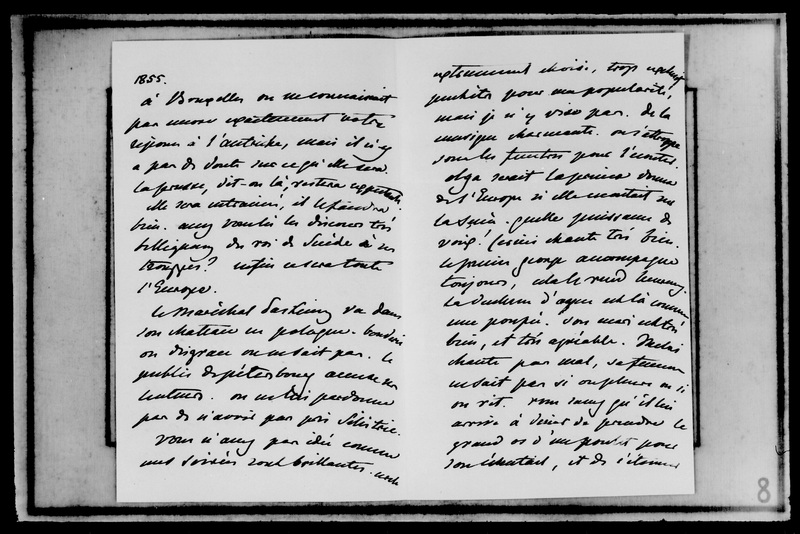 1855.
à Bruxelles on ne connaissait
pas encore exactement votre
réponse à l'autriche, mais il n'y
a pas de doute sur ce qu'elle sera.
La prusse, dit-on là, restera
elle sera entrainée, il le faudra
bien. avez vous lu les discours très
belliqueux du roi de Suède à ses
troupes? enfin ce sera toute
l'Europe.
le Maréchal Paskevitch va dans
son chateau en pologne. boudin
on disgrace on ne sait pas. le
public de pétersbourg accuse ses
lenteurs. on ne lui pardonne
pas de n'avoir pas pris Silistrie.
Vous n'avez pas idée comme
nos soirées sont brillantes.
extrêmement choisi, trop
pour ma popularité,
mais je n'y vise pas. de la
musique charmante. on s'attroupe
sous les fenêtres pour l'écouter.
olga serait la prima donna
de l'Europe si elle montait sur
la scène. quelle puissance de
voix! chante très bien.
le prince george accompagne
toujours, cela le rend heureux.
La duchesse d' est là comme
une poupée. son mari est très
bien, et très agréable.
chante pas mal, sa femme
ne sait pas si on pleure ou si
on rit. vous savez qu'il lui
arrive à diner de prendre le
grand os d'un poulet pour
son éventail, et de s'étonner
8